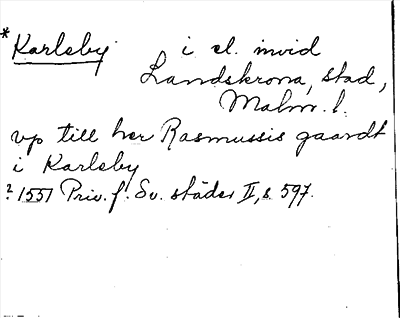 * Karleby i el. invid
Landskrona, stad,
Malm. l.
vp till her Rasmussis gaardt
i Karleby
? 1551 Priv. f. Sv. städer II, s. 597.